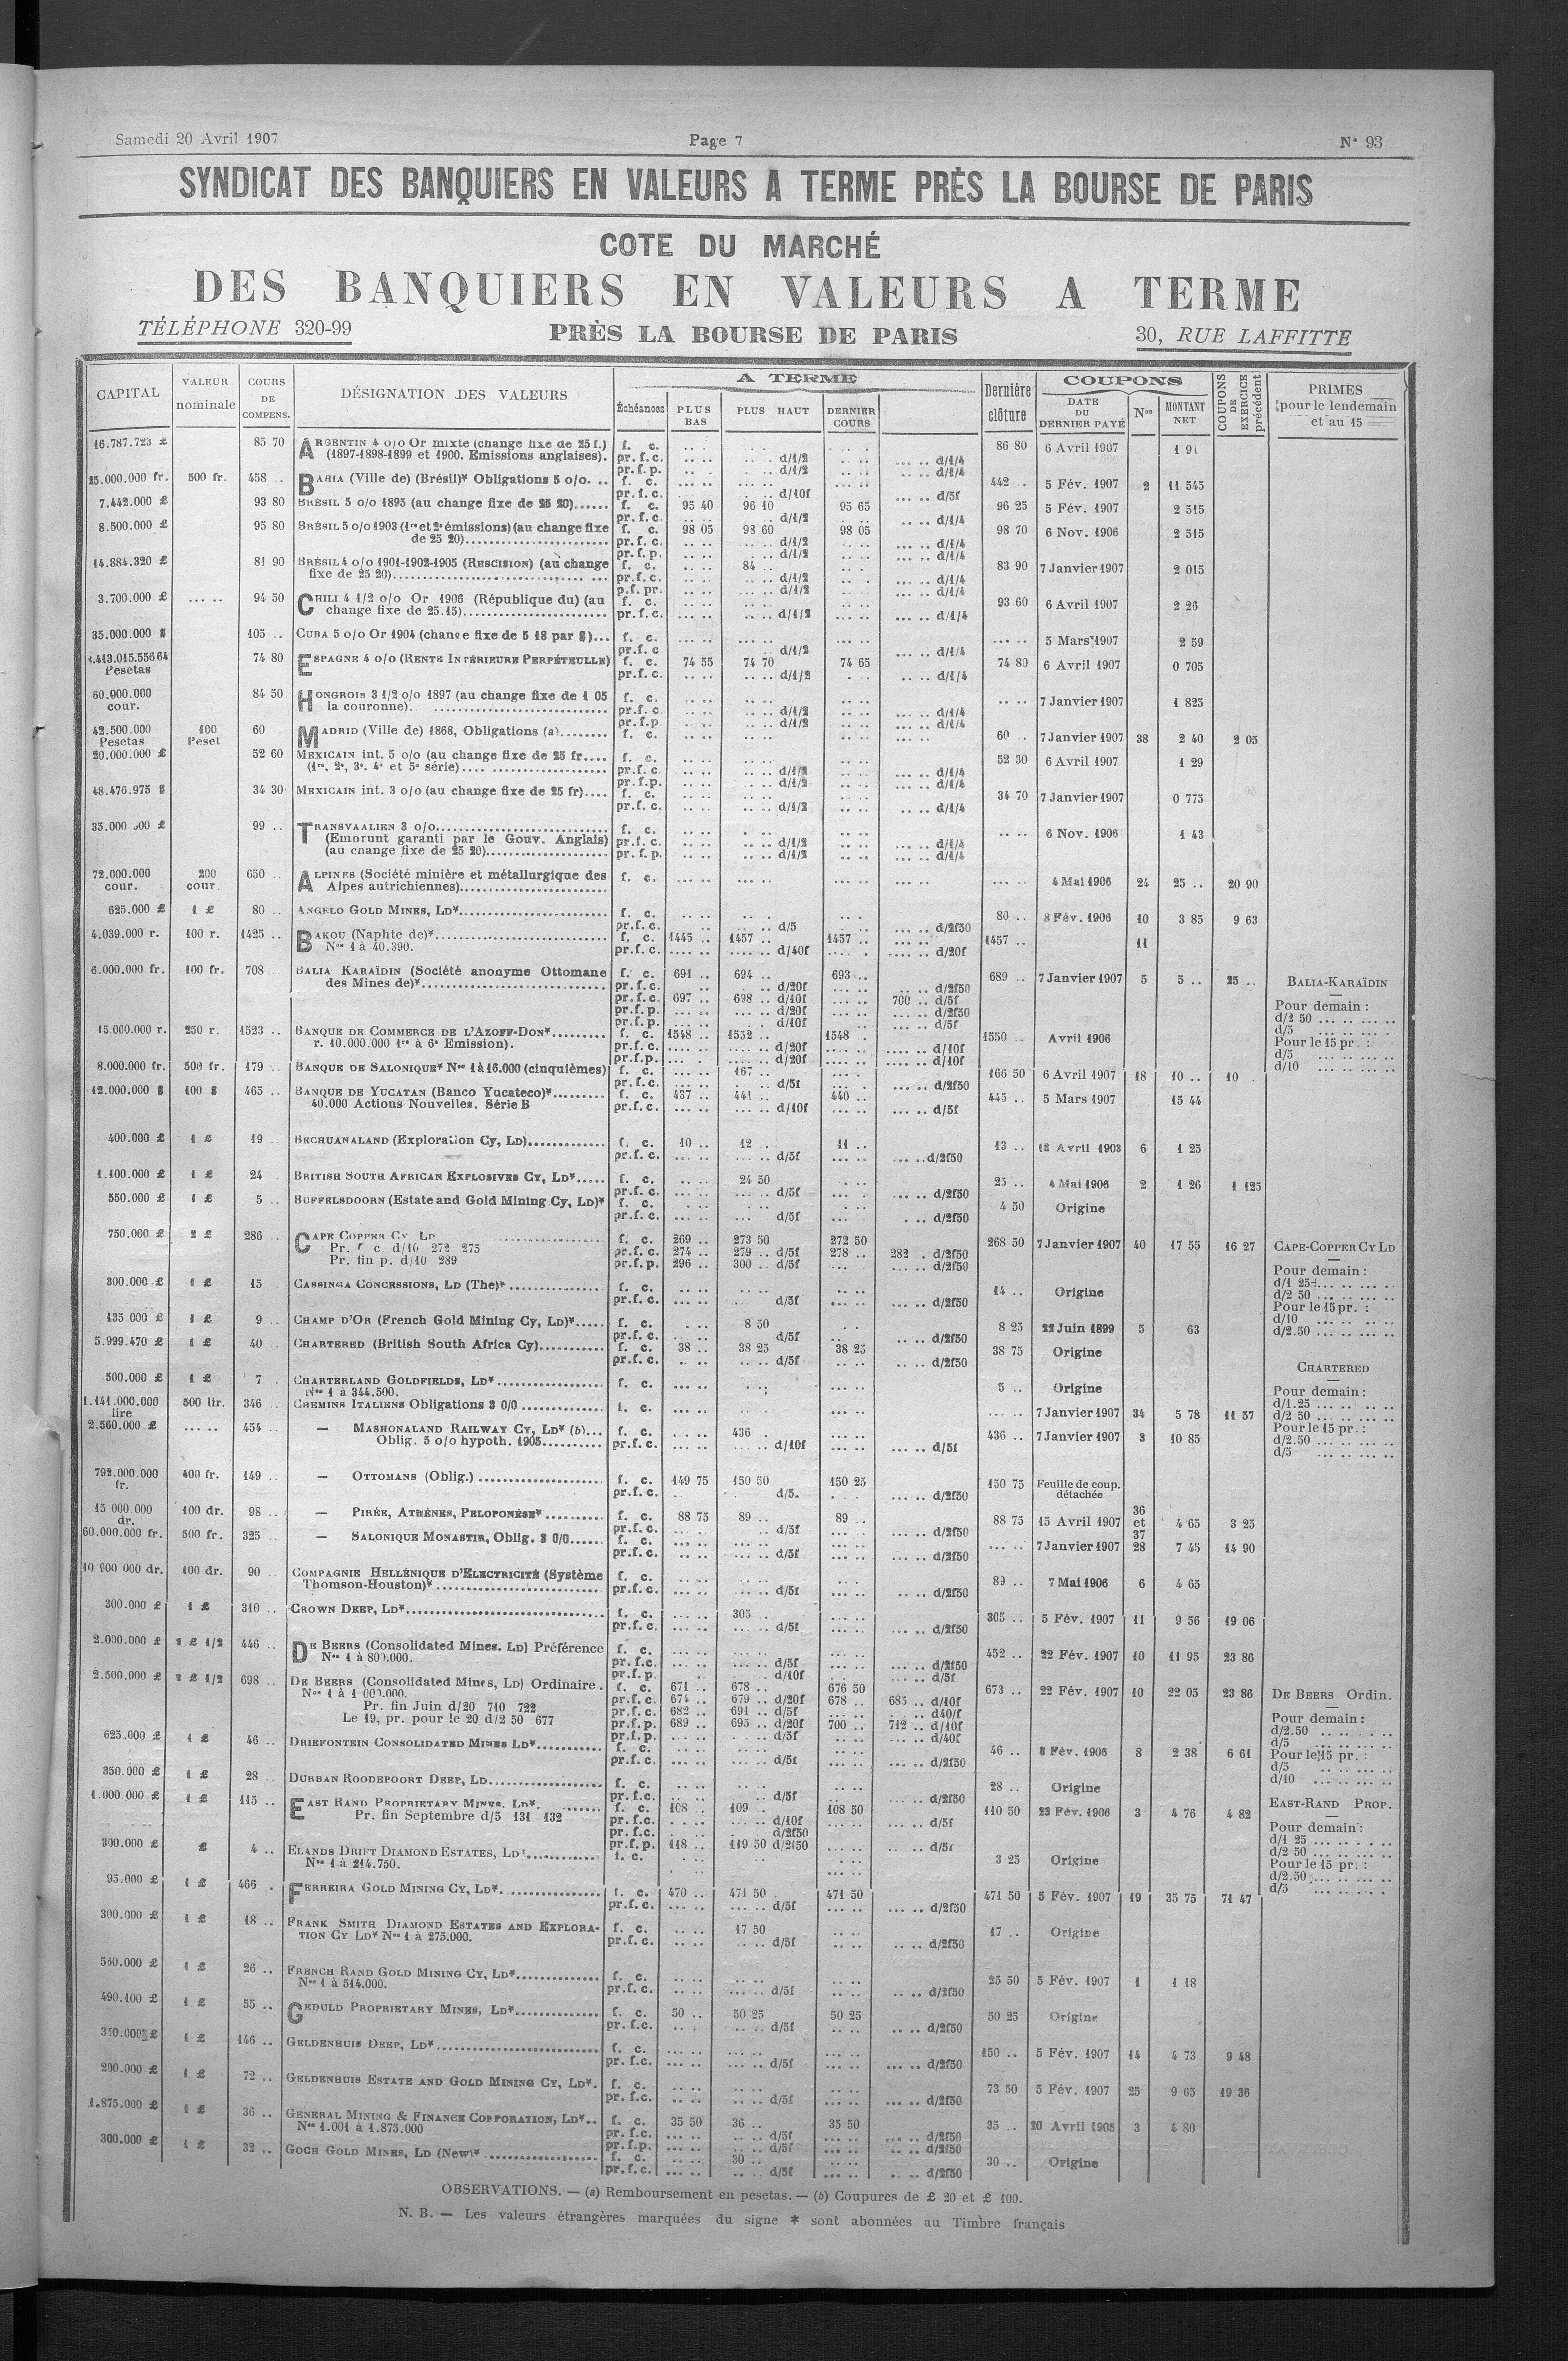 Samedi 20 Avril 1907 Page 7 N° 93
SYNDICAT DES BANQUIERS EN VALEURS A TERME PRÈS LA BOURSE DE PARIS
COTE DU MARCHÉ
DES BANQUIERS EN VALEURS A TERME
TÉLÉPHONE 320-99 PRÈS LA BOURSE DE PARIS 30, RUE LAFFITTE
CAPITAL VALEUR nominale COURS DE COMPENS. DÉSIGNATION DES VALEURS A TERME Échéances PLUS BAS PLUS HAUT DERNIER COURS Dernière clôture COUPONS DATE DU DERNIER PAYÉ Nos MONTANT NET COUPONS DE EXERCICE précédent PRIMES pour le lendemain et au 15
16.787.723 £ 85 70 ARGENTIN 4 o/o Or mixte (change fixe de 25 f.) f. c. 86 80 6 Avril 1907
(1897-1898-1899 et 1900. Emissions anglaises). pr. f. c. d/1/2 d/1/4
pr. f. p. d/1/2 d/1/4
25.000.000 fr. 500 fr. 458 .. BAHIA (Ville de) (Brésil)* Obligations 5 o/o. .. f. c. 442 .. 5 Fév. 1907 2 11 545
pr. f. c. d/10f d/5f
7.442.000 £ 93 80 BRÉSIL 5 o/o 1895 (au change fixe de 25 20)...... f. c. 95 40 96 10 95 65 96 25 5 Fév. 1907 2 515
pr. f. c. d/1/2 d/1/4
8.500.000 £ 95 80 BRÉSIL 5 o/o 1903 (1re et 2e émissions) (au change fixe f. c. 98 05 98 60 98 05 98 70 6 Nov. 1906 2 515
de 25 20) pr. f. c. d/1/2 d/1/4
pr. f. p. d/1/2 d/1/4
14.884.320 £ 81 90 BRÉSIL 4 o/o 1901-1902-1905 (RESCISION) (au change f. c. 84 .. 83 90 7 Janvier 1907 2 015
fixe de 25 20) pr. f. c. d/1/2 d/1/4
p.f. pr. d/1/2 d/1/4
3.700.000 £ 94 50 CHILI 4 1/2 o/o Or 1906 (République du) (au f. c. 93 60 6 Avril 1907 2 26
change fixe de 25.15) pr. f. c. d/1/2 d/1/4
35.000.000 $ 105 .. CUBA 5 o/o Or 1904 (change fixe de 5 18 par $)... f. c. 5 Mars 1907 2 59
pr. f. c. d/1/2 d/1/4
74 80 ESPAGNE 4 o/o (RENTE INTÉRIEURE PERPÉTEULLE) f. c. 74 55 74 70 74 65 74 80 6 Avril 1907 0 705
Pesetas pr. f. c. d/1/2 d/1/4
60.000.000 84 50 HONGROIS 3 1/2 o/o 1897 (au change fixe de 1 05 f. c. 7 Janvier 1907 1 825
cour. la couronne). pr. f. c. d/1/2 d/1/4
pr. f. p. d/1/2 d/1/4
42.500.000 100 60 MADRID (Ville de) 1868, Obligations (a) f. c. 60 .. 7 Janvier 1907 38 2 40 2 05
Pesetas Peset
20.000.000 £ 52 60 MEXICAIN int. 5 o/o (au change fixe de 25 fr.... f. c. 52 30 6 Avril 1907 1 29
(1re, 2e, 3e, 4e et 5e série) pr. f. c. d/1/2 d/1/4
pr. f. p. d/1/2 d/1/4
48.476.975 $ 34 30 MEXICAIN int. 3 o/o (au change fixe de 25 fr).... f. c. 34 70 7 Janvier 1907 0 775
pr. f. c. d/1/2 d/1/4
99 .. TRANSVAALIEN 3 o/o f. c. 6 Nov. 1906 1 43
(Emprunt garanti par le Gouv. Anglais) pr. f. c. d/1/2 d/1/4
(au change fixe de 25 20) pr. f. p. d/1/2 d/1/4
72.000.000 200 650 .. ALPINES (Société minière et métallurgique des f. c. 4 Mai 1906 24 25 .. 20 90
cour. cour. Alpes autrichiennes)
625.000 £ 1 £ 80 .. ANGELO GOLD MINES, LD* f. c. 80 .. 8 Fév. 1906 10 3 85 9 63
pr. f. c. d/5 d/2f50
4.039.000 r. 100 r. 1425 .. BAKOU (Naphte de)* f. c. 1445 .. 1457 .. 1457 .. 1457 .. 11
Nos 1 à 40.390. pr. f. c. d/40f d/20f
6.000.000 fr. 100 fr. 708 BALIA KARAÏDIN (Société anonyme Ottomane f. c. 691 .. 694 .. 693 .. 689 .. 7 Janvier 1907 5 5 .. 25 .. BALIA-KARAÏDIN
des Mines de)* pr. f. c. d/20f d/2f50
pr. f. c. 697 .. 698 .. d/10f 700 .. d/5f Pour demain :
pr. f. p. d/20f d/2f50 d/2 50
pr. f. p. d/10f d/5f d/5
15.000.000 r. 250 r. 1523 .. BANQUE DE COMMERCE DE L'AZOFF-DON* f. c. 1548 .. 1552 .. 1548 1550 .. Avril 1906 Pour le 15 pr. :
r. 10.000.000 1re à 6e Emission). pr. f. c. d/20f d/10f d/5
pr. f. p. d/20f d/10f d/10
8.000.000 fr. 500 fr. 479 .. BANQUE DE SALONIQUE* Nos 1 à 16.000 (cinquièmes) f. c. 167 .. 166 50 6 Avril 1907 18 10 .. 10
pr. f. c. d/5f d/2f50
12.000.000 $ 100 $ 465 .. BANQUE DE YUCATAN (Banco Yucateco)* f. c. 437 .. 441 .. 440 .. 445 .. 5 Mars 1907 15 44
40.000 Actions Nouvelles. Série B pr. f. c. d/10f d/5f
400.000 £ 1 £ 19 .. BECHUANALAND (Exploration Cy, LD) f. c. 10 .. 12 .. 11 .. 13 .. 12 Avril 1903 6 1 25
pr. f. c. d/5f d/2f50
1.100.000 £ 1 £ 24 BRITISH SOUTH AFRICAN EXPLOSIVES CY, LD* f. c. 24 50 25 .. 4 Mai 1906 2 1 26 1 125
pr. f. c. d/5f d/2f50
550.000 £ 1 £ 5 .. BUFFELSDOORN (Estate and Gold Mining Cy, LD)* f. c. 4 50 Origine
pr. f. c. d/5f d/2f50
750.000 £ 2 £ 286 .. CAPE COPPER CY LD f. c. 269 .. 273 50 272 50 268 50 7 Janvier 1907 40 17 55 16 27 CAPE-COPPER CY LD
Pr. f c d/10 272 275 pr. f. c. 274 .. 279 .. d/5f 278 .. 282 d/2f50
Pr. fin p. d/10 289 pr. f. p. 296 .. 300 .. d/5f d/2f50 Pour demain :
300.000 £ 1 £ 15 CASSINGA CONCESSIONS, LD (The)* f. c. 14 .. Origine d/1 25
pr. f. c. d/5f d/2f50 d/2 50
Pour le 15 pr. :
135 000 £ 1 £ 9 .. CHAMP D'OR (French Gold Mining Cy, LD)* f. c. 8 50 8 25 22 Juin 1899 5 63 d/10
pr. f. c. d/5f d/2f50 d/2.50
5.999.470 £ 1 £ 40 CHARTERED (British South Africa Cy) f. c. 38 .. 38 25 38 25 38 75 Origine
pr. f. c. d/5f d/2f50 CHARTERED
500.000 £ 1 £ 7 CHARTERLAND GOLDFIELDS, LD* f. c. 5 .. Origine Pour demain :
Nos 1 à 344.500. d/1.25
1.141.000.000 500 lir. 346 .. CHEMINS ITALIENS Obligations 3 0/0 f. c. 7 Janvier 1907 34 5 78 11 57 d/2 50
lire Pour le 15 pr. :
2.560.000 £ 454 .. — MASHONALAND RAILWAY CY, LD* (b)... f. c. 436 .. 436 .. 7 Janvier 1907 3 10 85 d/2.50
Oblig. 5 o/o hypoth. 1905 pr. f. c. d/10f d/5f d/5
792.000.000 400 fr. 149 .. — OTTOMANS (Oblig.) f. c. 149 75 150 50 150 25 150 75 Feuille de coup.
fr. pr. f. c. d/5 d/2f50 détachée
15 000 000 100 dr. 98 .. — PIRÉE, ATHÈNES, PELOPONÈSE* f. c. 88 75 89 .. 89 .. 88 75 15 Avril 1907 36 et 37 4 65 3 25
dr. pr. f. c. d/5f d/2f50
60.000.000 fr. 500 fr. 325 .. — SALONIQUE MONASTIR, Oblig. 3 0/0 f. c. 7 Janvier 1907 28 7 45 14 90
pr. f. c. d/5f d/2f50
10 000 000 dr. 100 dr. 90 .. COMPAGNIE HELLÉNIQUE D'ELECTRICITÉ (Système f. c. 89 .. 7 Mai 1906 6 4 65
Thomson-Houston)* pr. f. c. d/5f d/2f50
300.000 £ 1 £ 310 .. CROWN DEEP, LD* f. c. 305 .. 305 .. 5 Fév. 1907 11 9 56 19 06
pr. f. c. d/5f d/2f50
2.000.000 £ 2 £ 1/2 446 .. DE BEERS (Consolidated Mines. LD) Préférence f. c. 452 .. 22 Fév. 1907 10 11 95 23 86
Nos 1 à 800.000. pr. f. c. d/5f d/2f50
pr. f. p. d/10f d/5f
2.500.000 £ 2 £ 1/2 698 .. DE BEERS (Consolidated Mines, LD) Ordinaire. f. c. 671 .. 678 .. 676 50 673 .. 22 Fév. 1907 10 22 05 23 86 DE BEERS Ordin.
Nos 1 à 1 000.000. pr. f. c. 674 .. 679 .. d/20f 678 .. 685 .. d/10f
Pr. fin Juin d/20 710 722 pr. f. c. 682 .. 691 .. d/5f d40/f Pour demain :
Le 19, pr. pour le 20 d/2 50 677 pr. f. p. 689 .. 695 .. d/20f 700 .. 712 .. d/10f d/2.50
pr. f. p. d/5f d/40f d/5
625.000 £ 1 £ 46 .. DRIEFONTEIN CONSOLIDATED MINES LD* f. c. 46 .. 8 Fév. 1906 8 2 38 6 61 Pour le 15 pr. :
pr. f. c. d/5f d/2f50 d/5
350.000 £ 1 £ 28 .. DURBAN ROODEPOORT DEEP, LD f. c. 28 .. Origine d/10
pr. f. c. d/5f d/2f50
1.000.000 £ 1 £ 115 .. EAST RAND PROPRIETARY MINES, LD*. f. c. 108 .. 109 .. 108 50 110 50 23 Fév. 1906 3 4 76 4 82 EAST-RAND PROP.
Pr. fin Septembre d/5 131 132 pr. f. c. d/10f d/5f
pr. f. c. d/2f50 Pour demain :
pr. f. p. 118 .. 119 50 d/2f50 d/5f d/1 25
300.000 £ £ 4 .. ELANDS DRIFT DIAMOND ESTATES, LD f. c. 3 25 Origine d/2 50
Nos 1 à 214.750. Pour le 15 pr. :
95.000 £ 1 £ 466 FERREIRA GOLD MINING CY, LD*. f. c. 470 .. 471 50 471 50 471 50 5 Fév. 1907 19 35 75 71 47 d/2.50
pr. f. c. d/5f d/2f50 d/5
300.000 £ 1 £ 18 .. FRANK SMITH DIAMOND ESTATES AND EXPLORA- f. c. 17 50 17 .. Origine
TION CY LD* Nos 1 à 275.000. pr. f. c. d/5f d/2f50
560.000 £ 1 £ 26 .. FRENCH RAND GOLD MINING CY, LD* f. c. 25 50 5 Fév. 1907 1 1 18
Nos 1 à 514.000. pr. f. c. d/5f d/2f50
490.100 £ 1 £ 55 .. GEDULD PROPRIETARY MINES, LD* f. c. 50 .. 50 25 50 25 50 25 Origine
pr. f. c. d/5f d/2f50
1 £ 146 .. GELDENHUIS DEEP, LD* f. c. 150 .. 5 Fév. 1907 14 4 73 9 48
pr. f. c. d/5f d/2f50
200.000 £ 1 £ 72 .. GELDENHUIS ESTATE AND GOLD MINING CY, LD*. f. c. 73 50 5 Fév. 1907 25 9 65 19 36
pr. f. c. d/5f d/2f50
1.875.000 £ 1 £ 36 .. GENERAL MINING & FINANCE CORPORATION, LD*.. f. c. 35 50 36 .. 35 50 35 .. 20 Avril 1905 3 4 80
Nos 1.001 à 1.875.000 pr. f. c. d/5f d/2f50
pr. f. p. d/5f d/2f50
300.000 £ 1 £ 32 .. GOCH GOLD MINES, LD (New)* f. c. 30 .. 30 .. Origine
pr. f. c. d/5f d/2f50
OBSERVATIONS. — (a) Remboursement en pesetas. — (b) Coupures de £ 20 et £ 100.
N. B. — Les valeurs étrangères marquées du signe * sont abonnées au Timbre français